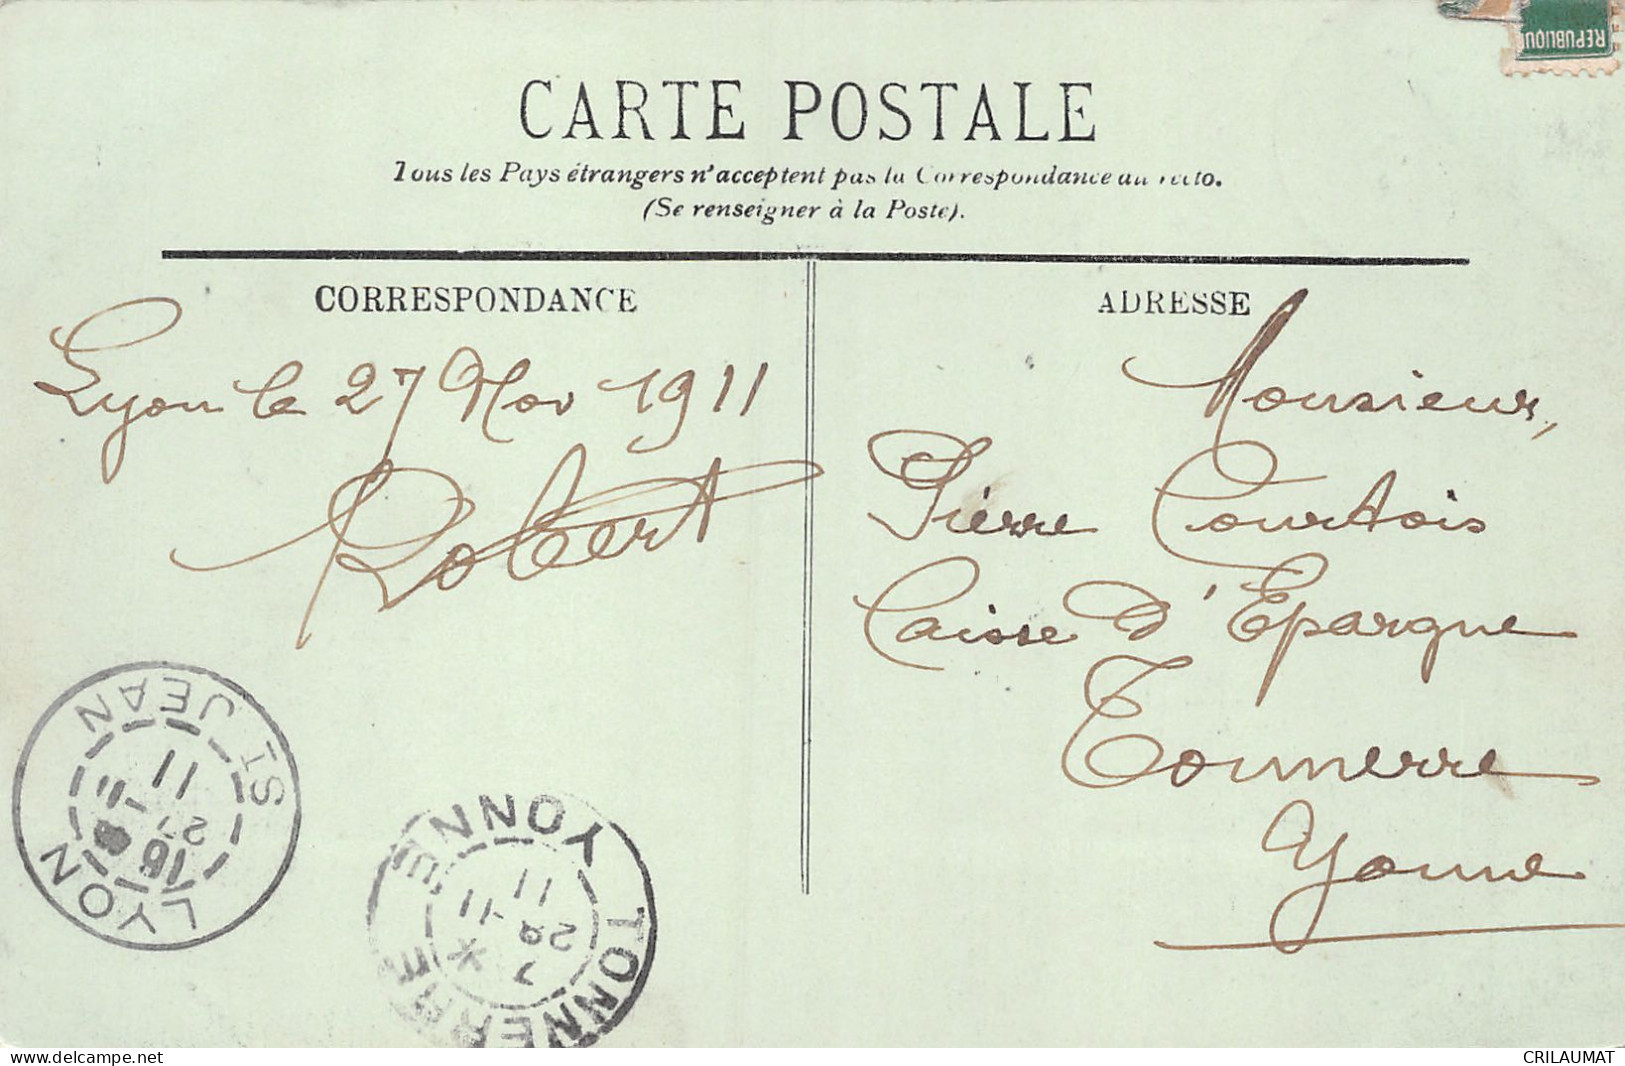 REPUBLIQUE
CARTE POSTALE
Tous les Pays étrangers n'acceptent pas la Correspondance au recto.
(Se renseigner à la Poste).
CORRESPONDANCE
ADRESSE
Lyon le 27 Nov 1911
Robert
Monsieur,
Pierre Courtois
Caisse d'Epargne
Tonnerre
Yonne
LYON ST JEAN
11
TONNERRE YONNE
7 *
28 -11
11
delcampe.net
CRILAUMAT